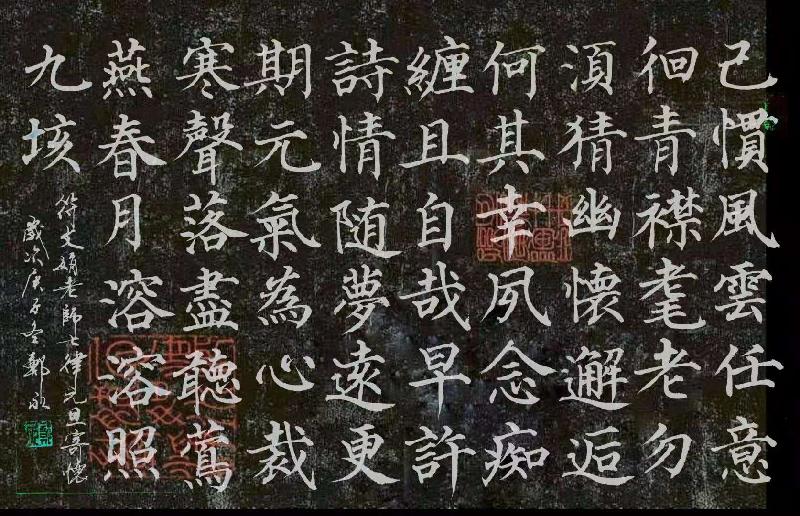 己慣風雲任意
徊青襟耄老勿
湏猜幽懷邂逅
何其幸夙念痴
纏且自哉早許
詩情随夢遠更
期元氣為心裁
寒聲落盡聽鶯
燕春月溶溶照
九垓
符文娟老師七律元旦寄懷
歲次庚子冬鄭永